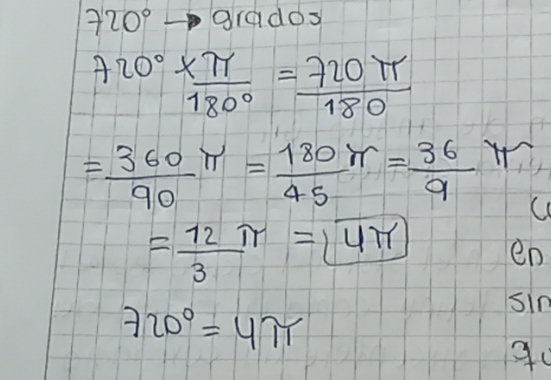 720° → grados
720° × π/180° = 720 π/180
= 360 π/90 = 180 π/45 = 36 π/9
= 12 π/3 = 4π
720° = 4π
en
sin